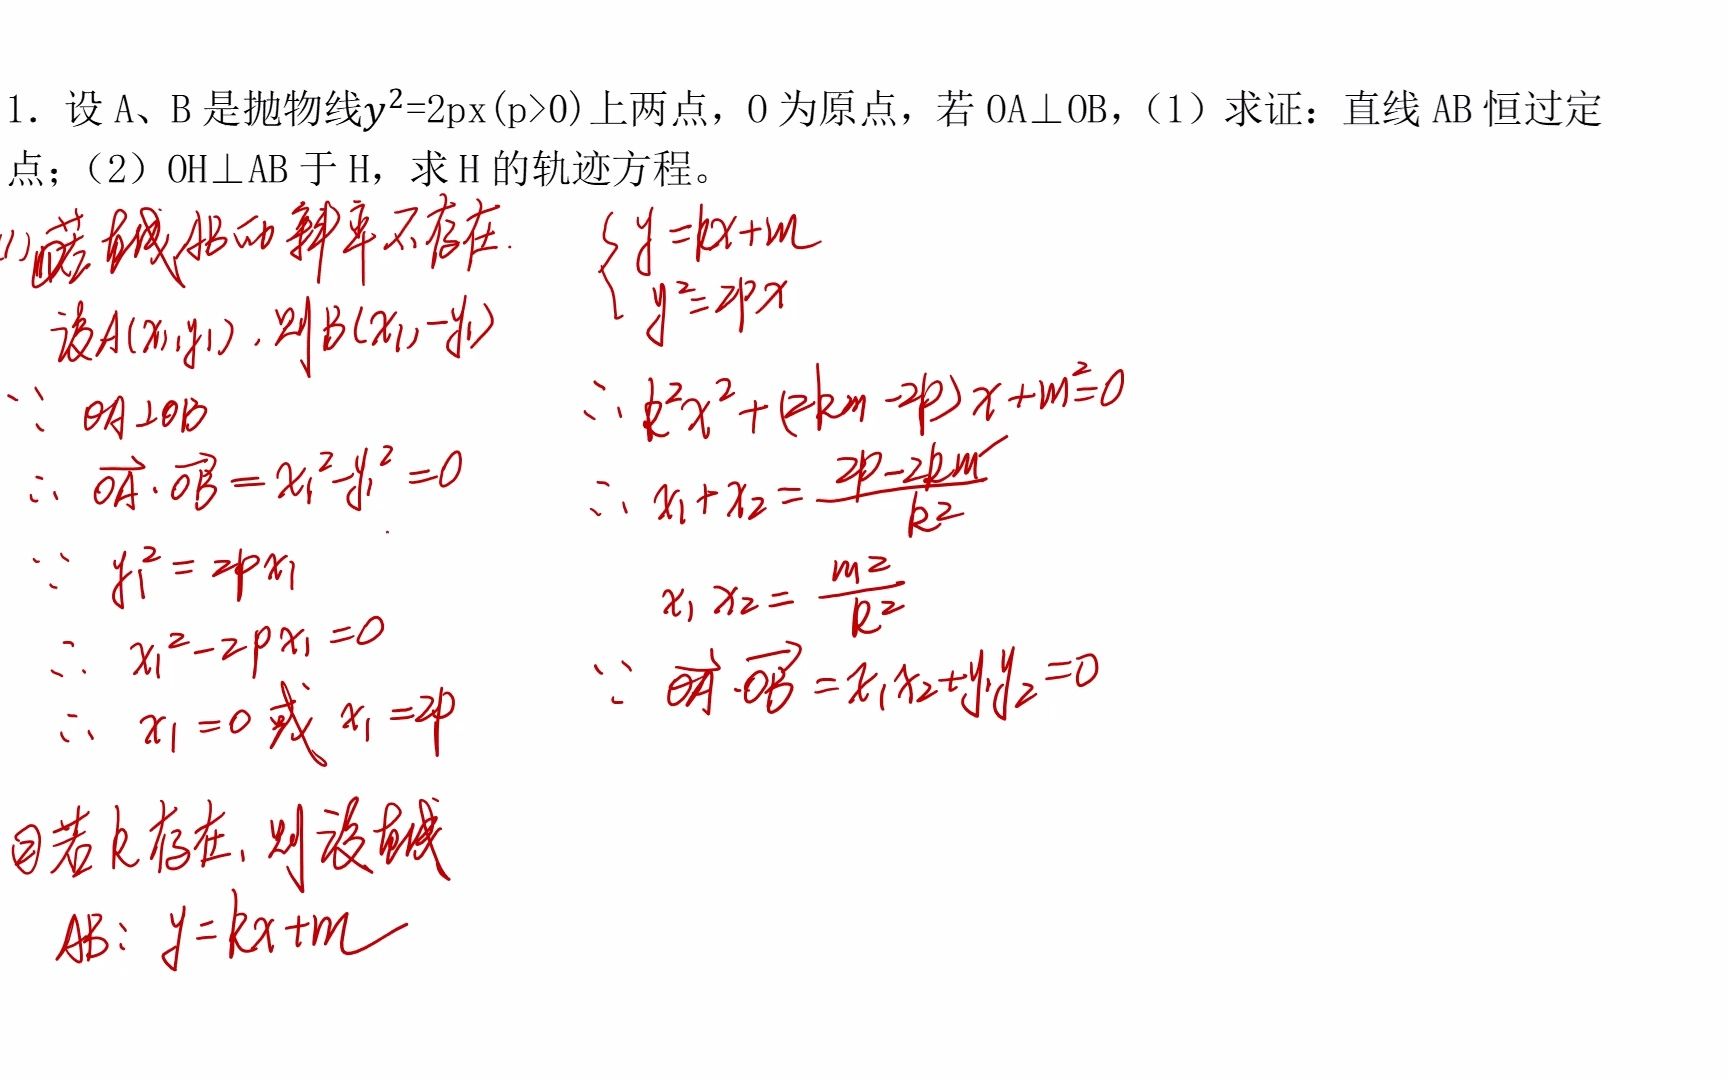 1. 设 A、B 是抛物线y²=2px(p>0)上两点，O 为原点，若 OA⊥OB，（1）求证：直线 AB 恒过定
点；（2）OH⊥AB 于 H，求 H 的轨迹方程。
(1) ①若直线AB的斜率不存在.
设A(x₁,y₁)，则B(x₁,-y₁)
∵ OA⊥OB
∴ OA·OB = x₁²-y₁² = 0
∵ y₁² = 2px₁
∴ x₁²-2px₁ = 0
∴ x₁ = 0 或 x₁ = 2p
②若k存在，则设直线
AB: y = kx+m
{ y = kx+m
y² = 2px
∴ k²x²+(2km-2p)x+m² = 0
∴ x₁+x₂ = (2p-2km)/k²
x₁x₂ = m²/k²
∵ OA·OB = x₁x₂+y₁y₂ = 0